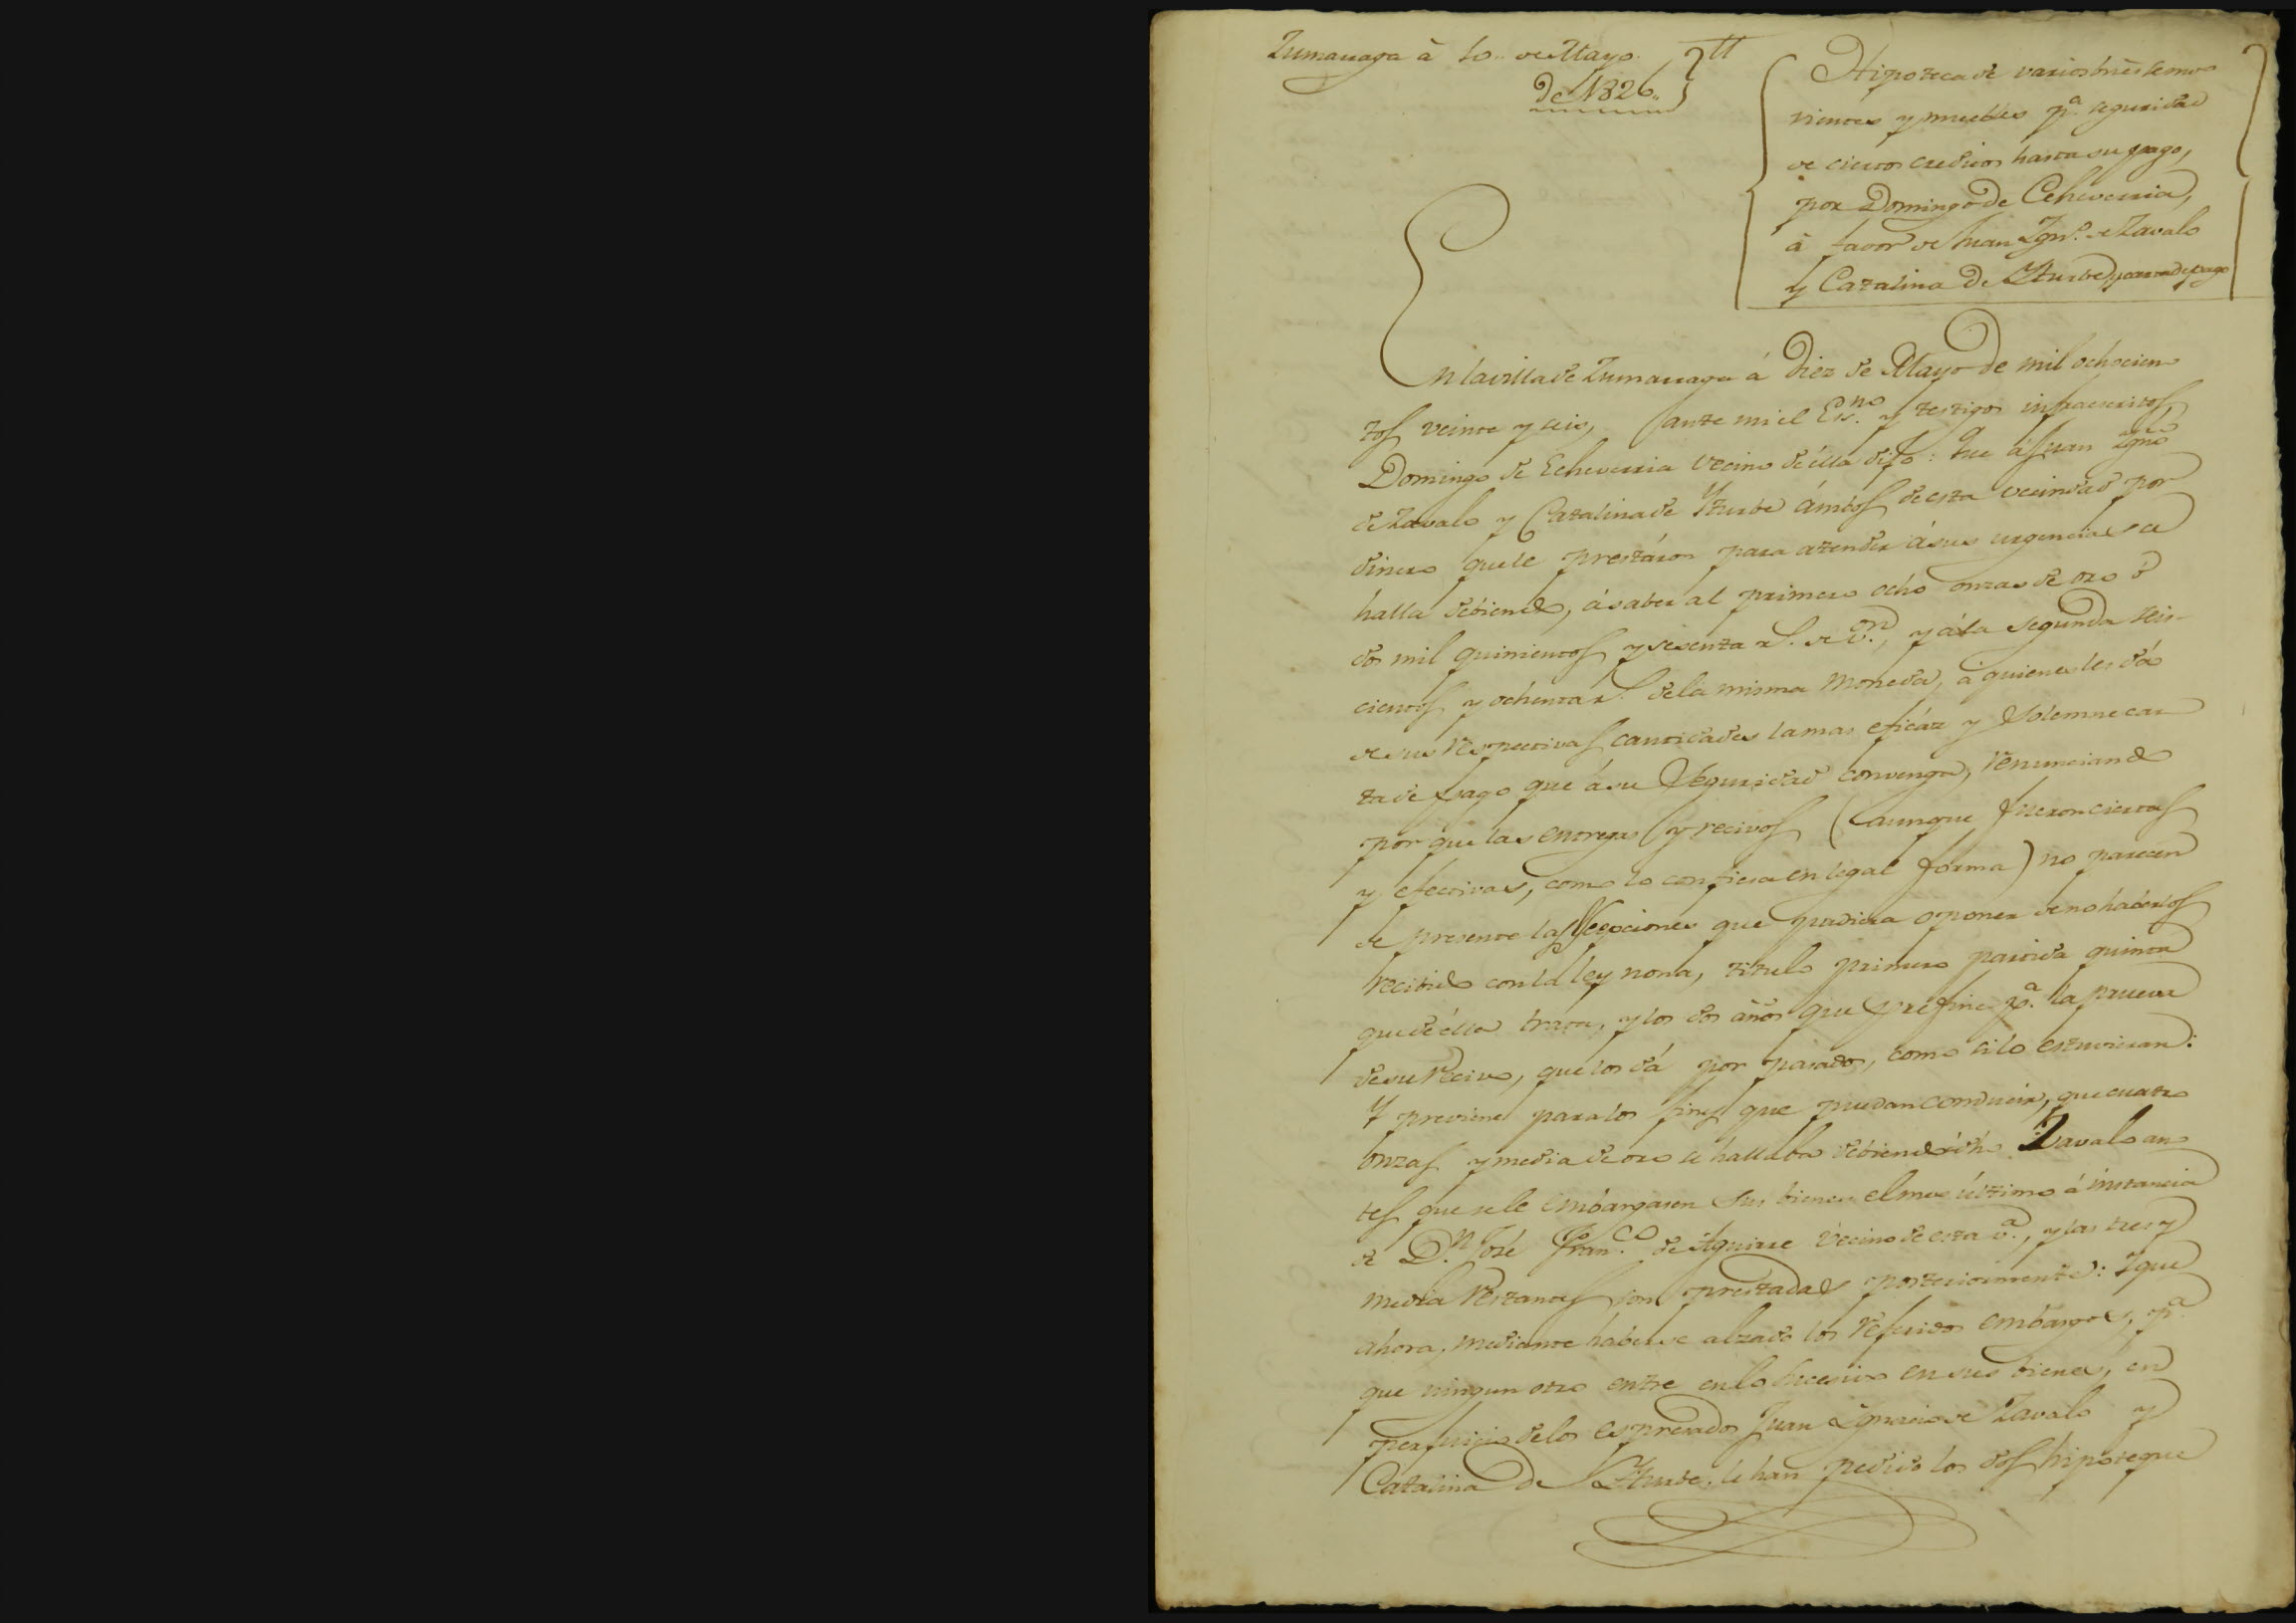 Zumarraga à 10.. de Mayo
De 1826..
Hipoteca de varios bn̄es semo
vientes y muebles p.ª seguridad
de ciertos creditos hasta su pago,
por Domingo de Echeverria,
à favor de Juan Ygn.º de Zavalo
y Catalina de Yturbe, y carta de pago
En la villa de Zumarraga á Diez de Mayo de mil ochocien
tos veinte y seis, ante mi el Es.no y testigos infraescritos,
Domingo de Echeverria vecino de élla dijo: Que á Juan Ygnº
de Zavalo y Catalina de Yturbe ámbos de esta vecindad por
dinero que le prestáron para atender á sus urgencias se
halla debiendo, á saber al primero ocho onzas de oro ó
dos mil quinientos y sesenta rs. de v.on, y á la segunda seis-
cientos y ochenta rs. de la misma moneda, á quienes les dá
de sus respectivas cantidades la mas eficáz y solemne car
ta de pago que á su seguridad convenga, renunciando
por que las entregas y recivos (aunque fueron ciertas
y efectivas, como lo confiesa en legal forma) no parecen
de presente las excepciones que pudiera oponer de no haberlos
recibido con la ley nona, titulo primero partida quinta
que de élla trata, y los dos años que prefine p.ª la prueva
de su recivo, que los dá por pasados, como si lo estuvieran:
Y previene para los fines que puedan conducir, que cuatro
onzas y media de oro se hallaba debiendo á dho Zavalo an
tes que se le embargasen sus bienes el mes último á instancia
de D.n José Fran.co de Aguirre vecino de esta v.ª, y las tres y
media restantes son prestadas posteriormente: Y que
ahora, mediante haberse alzado los referidos embargos, p.ª
que ningun otro entre en lo sucesivo en sus bienes, en
perjuicio de los espresados Juan Ygnacio de Zavalo y
Catalina de Yturbe, le han pedido los dos hipoteque